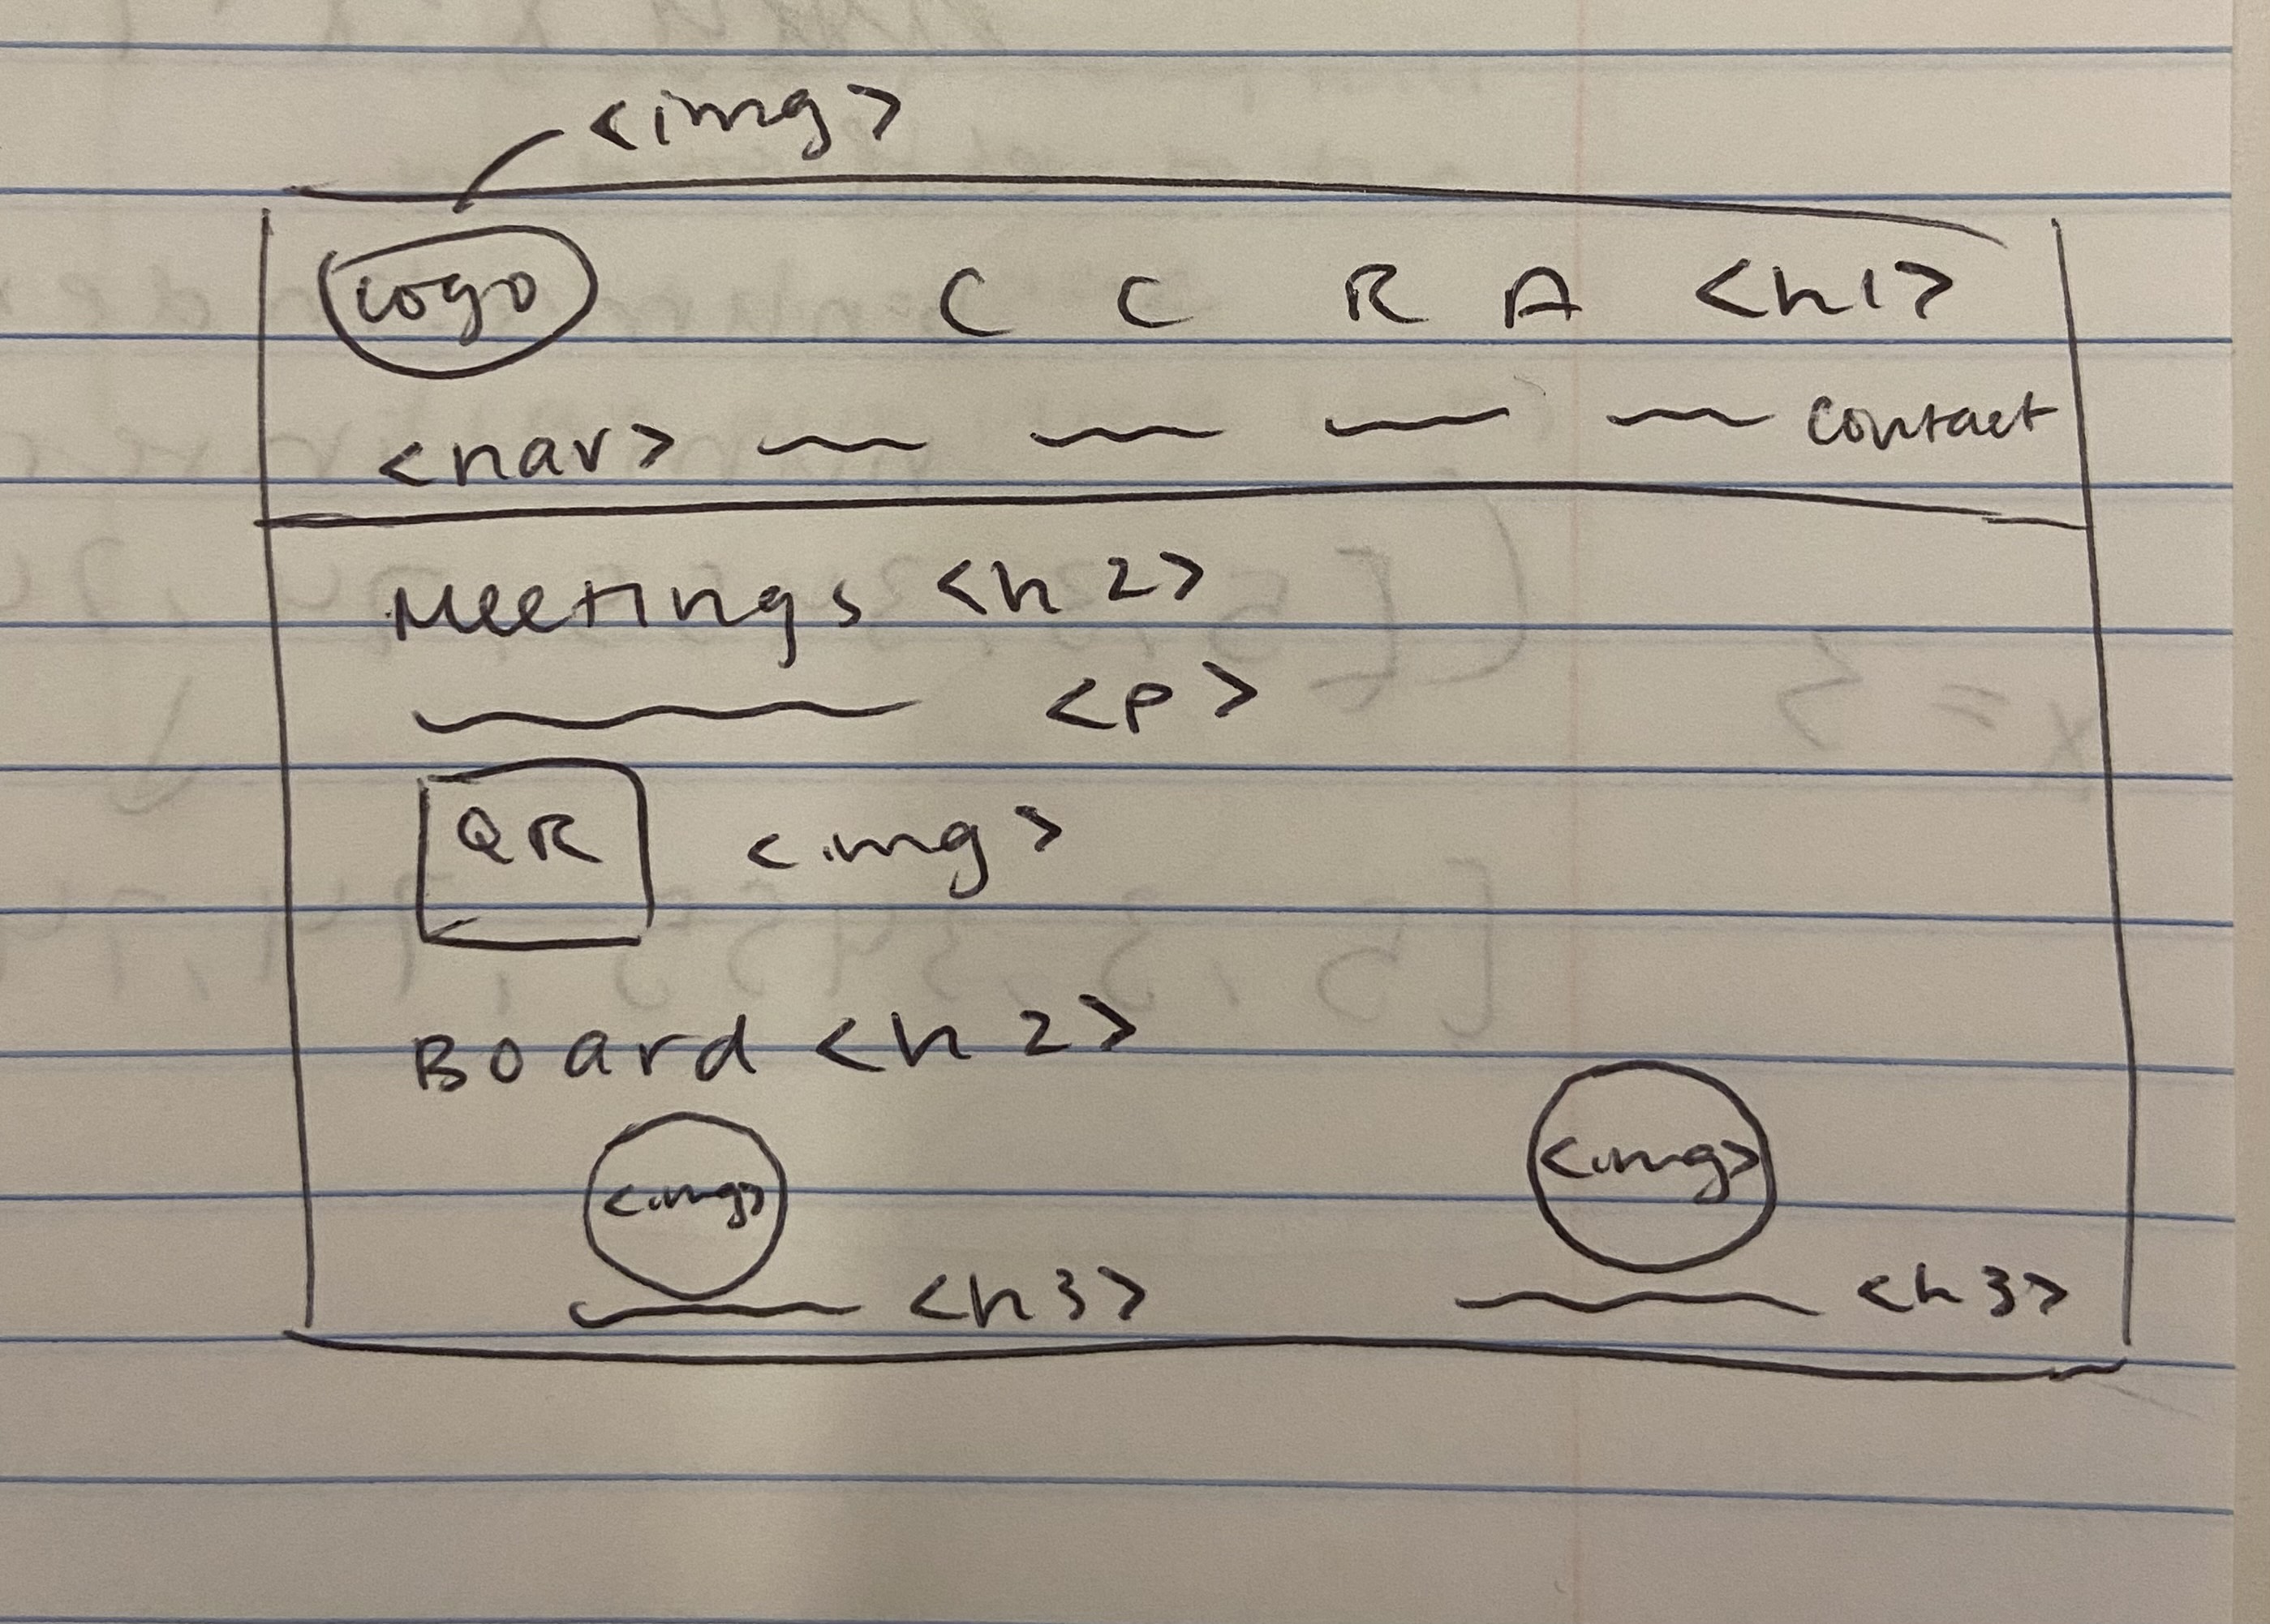 <img>
Logo C C R A <h1>
<nav> contact
Meetings <h2>
<p>
QR <img>
Board <h2>
<img> <img>
<h3> <h3>